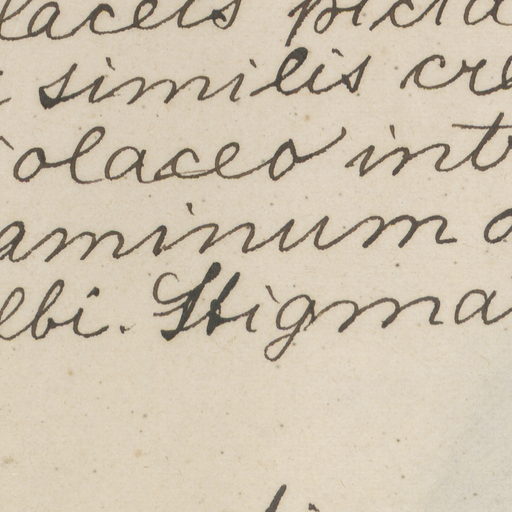 laceis picta
similis cre
olaceo int
aminum
lbi. Stigma